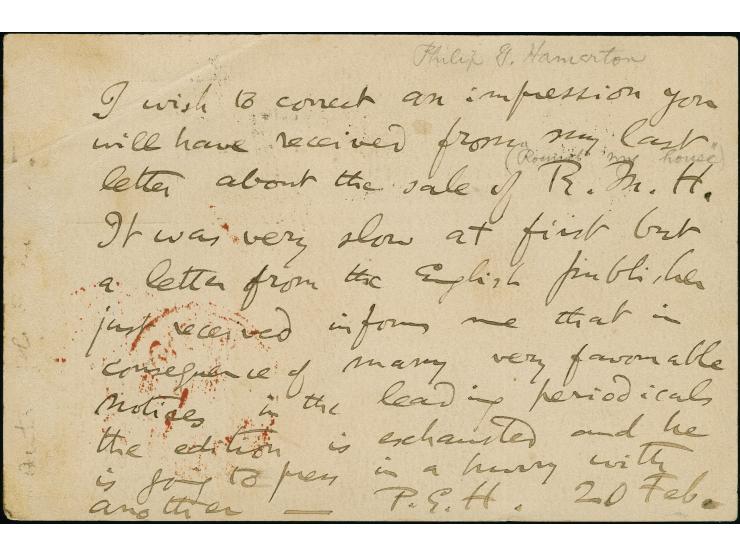 Philip G. Hamerton
I wish to correct an impression you
will have received from my last
(Round my house")
letter about the sale of R. M. H.
It was very slow at first but
a letter from the English publisher
just received informs me that in
consequence of many very favourable
notices in the leading periodicals
the edition is exhausted and he
is going to press in a hurry with
another — P. G. H. 20 Feb.